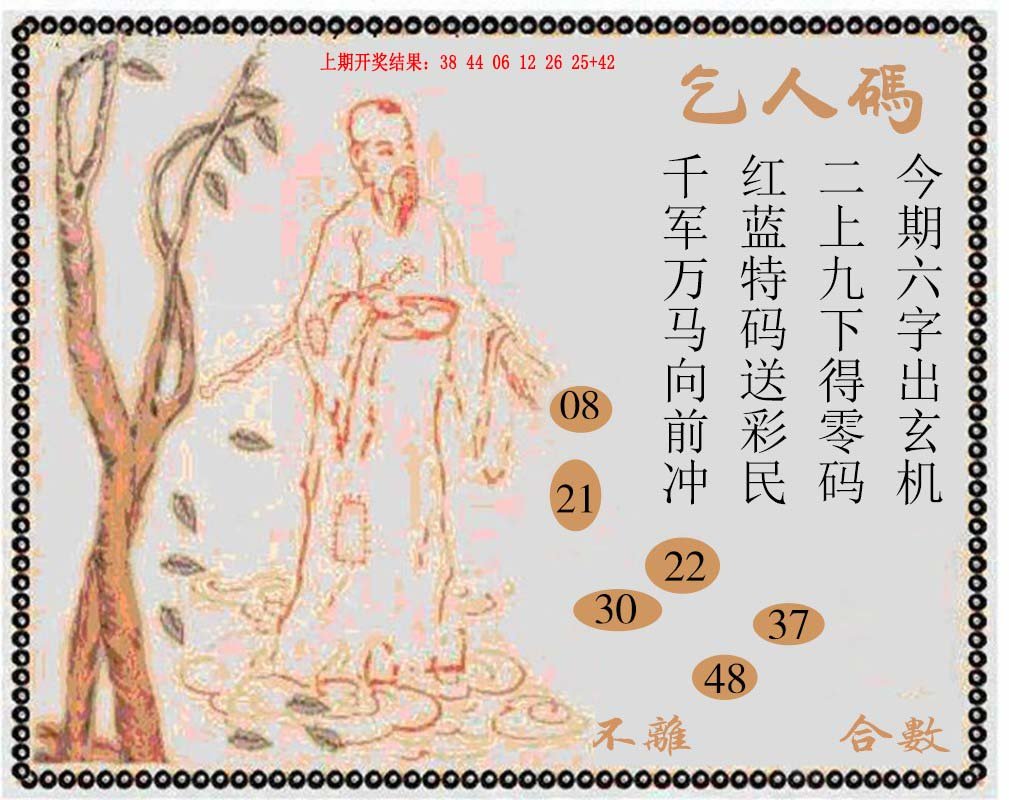 上期开奖结果: 38 44 06 12 26 25+42
乞人碼
今期六字出玄机
二上九下得零码
红蓝特码送彩民
千军万马向前冲
08
21
22
30
37
48
不離
合數